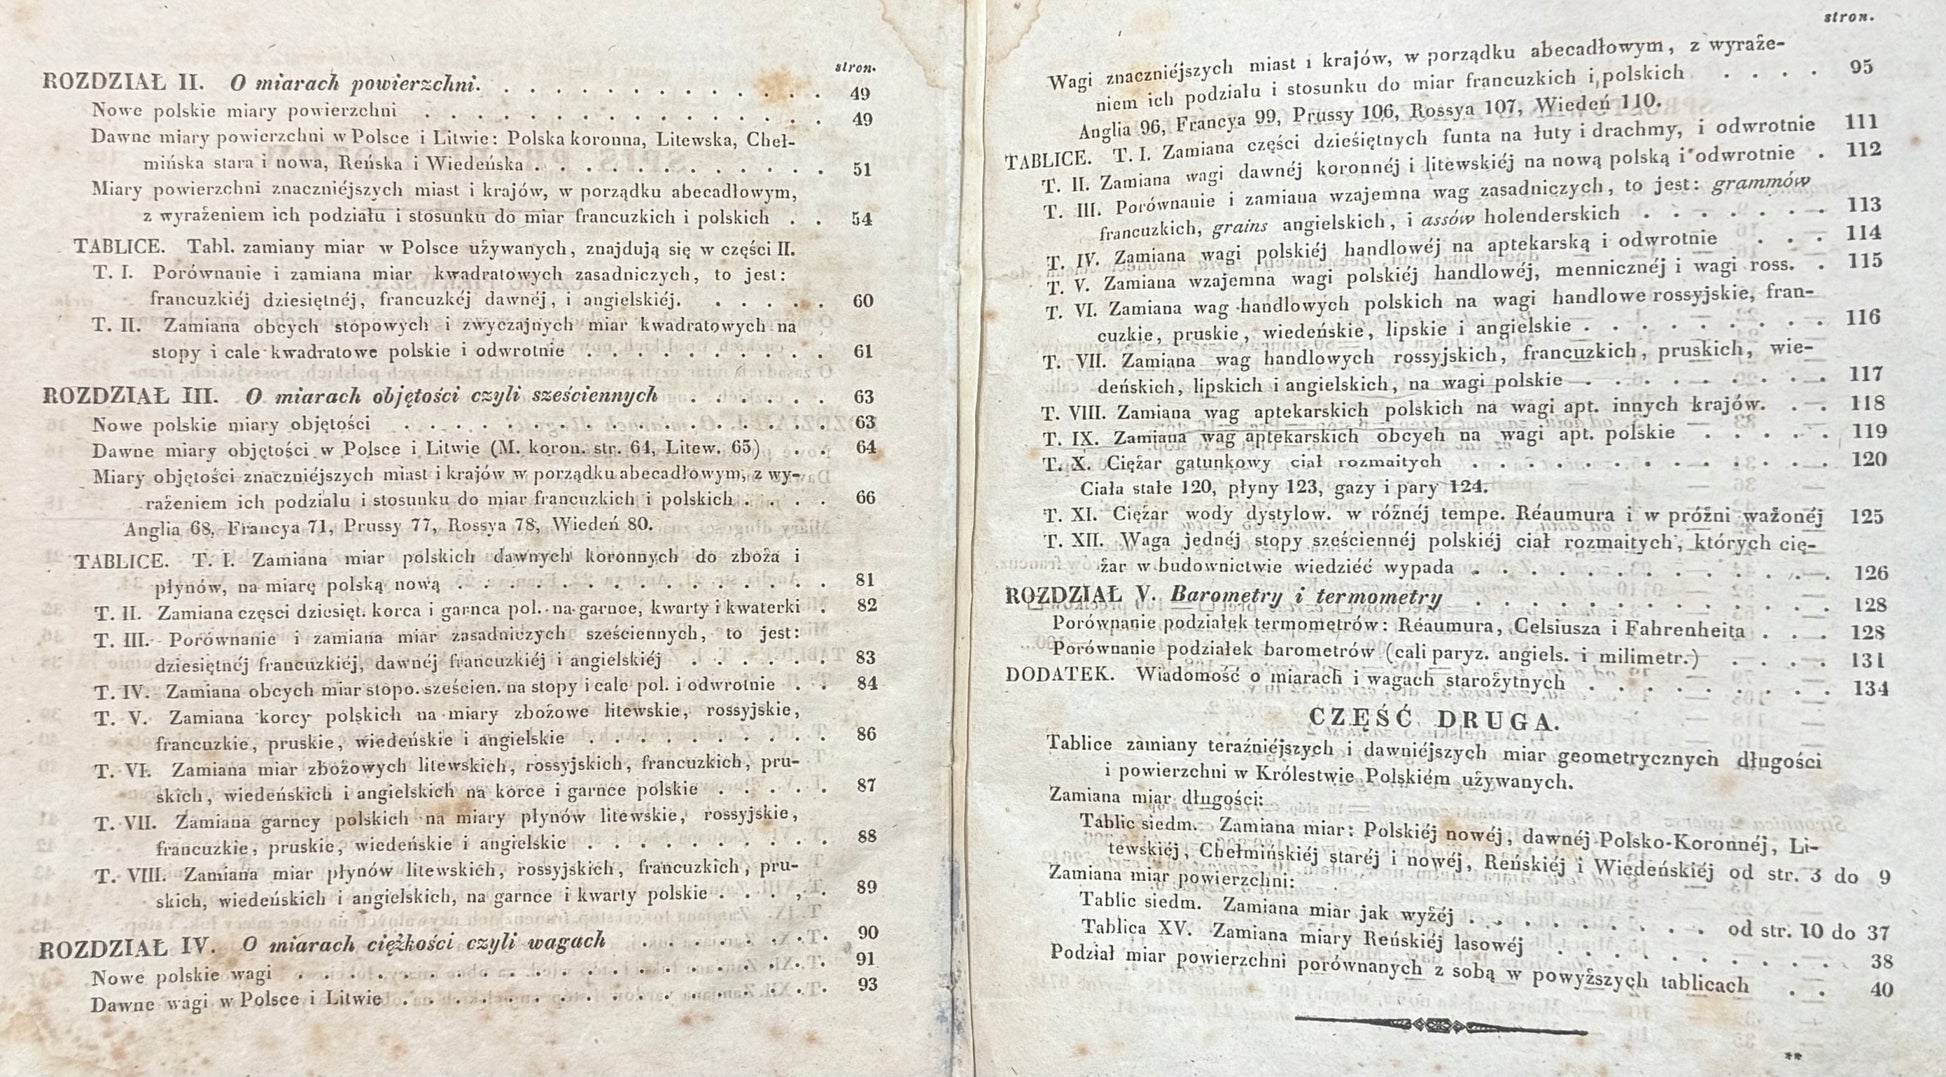 stron.
ROZDZIAŁ II. O miarach powierzchni. . . . . . . . . . . . . . 49
Nowe polskie miary powierzchni . . . . . . . . . . . . . . 49
Dawne miary powierzchni w Polsce i Litwie: Polska koronna, Litewska, Cheł-
mińska stara i nowa, Reńska i Wiedeńska . . . . . . . . . . . 51
Miary powierzchni znaczniéjszych miast i krajów, w porządku abecadłowym,
z wyrażeniem ich podziału i stosunku do miar francuzkich i polskich . . 54
TABLICE. Tabl. zamiany miar w Polsce używanych, znajdują się w części II.
T. I. Porównanie i zamiana miar kwadratowych zasadniczych, to jest:
francuzkiéj dziesiętnéj, francuzkéj dawnéj, i angielskiéj. . . . . . 60
T. II. Zamiana obcych stopowych i zwyczajnych miar kwadratowych na
stopy i cale kwadratowe polskie i odwrotnie . . . . . . . . . 61
ROZDZIAŁ III. O miarach objętości czyli sześciennych . . . . . . 63
Nowe polskie miary objętości . . . . . . . . . . . . . . . 63
Dawne miary objętości w Polsce i Litwie (M. koron. str. 64, Litew. 65) . . 64
Miary objętości znaczniéjszych miast i krajów w porządku abecadłowym, z wy-
rażeniem ich podziału i stosunku do miar francuzkich i polskich . . . . 66
Anglia 68, Francya 71, Prussy 77, Rossya 78, Wiedeń 80.
TABLICE. T. I. Zamiana miar polskich dawnych koronnych do zboża i
płynów, na miarę polską nową . . . . . . . . . . . . . . 81
T. II. Zamiana części dziesięt. korca i garnca pol. na garnce, kwarty i kwaterki . 82
T. III. Porównanie i zamiana miar zasadniczych sześciennych, to jest:
dziesiętnéj francuzkiéj, dawnéj francuzkiéj i angielskiéj . . . . . . 83
T. IV. Zamiana obcych miar stopo. sześcien. na stopy i cale pol. i odwrotnie . . 84
T. V. Zamiana korcy polskich na miary zbożowe litewskie, rossyjskie,
francuzkie, pruskie, wiedeńskie i angielskie . . . . . . . . . 86
T. VI. Zamiana miar zbożowych litewskich, rossyjskich, francuzkich, pru-
skich, wiedeńskich i angielskich na korce i garnce polskie . . . . . 87
T. VII. Zamiana garncy polskich na miary płynów litewskie, rossyjskie,
francuzkie, pruskie, wiedeńskie i angielskie . . . . . . . . . 88
T. VIII. Zamiana miar płynów litewskich, rossyjskich, francuzkich, pru-
skich, wiedeńskich i angielskich, na garnce i kwarty polskie . . . . . 89
ROZDZIAŁ IV. O miarach ciężkości czyli wagach . . . . . . . . 90
Nowe polskie wagi . . . . . . . . . . . . . . . . . . . 91
Dawne wagi w Polsce i Litwie . . . . . . . . . . . . . . . 93
stron.
Wagi znaczniéjszych miast i krajów, w porządku abecadłowym, z wyraże-
niem ich podziału i stosunku do miar francuzkich i polskich . . . . 95
Anglia 96, Francya 99, Prussy 106, Rossya 107, Wiedeń 110.
TABLICE. T. I. Zamiana części dzieśiętnych funta na łuty i drachmy, i odwrotnie 111
T. II. Zamiana wagi dawnéj koronnéj i litewskiéj na nową polską i odwrotnie . 112
T. III. Porównanie i zamiana wzajemna wag zasadniczych, to jest: grammów
francuzkich, grains angielskich, i assów holenderskich . . . . . . . 113
T. IV. Zamiana wagi polskiéj handlowéj na aptekarską i odwrotnie . . . 114
T. V. Zamiana wzajemna wagi polskiéj handlowéj, mennicznéj i wagi ross. . 115
T. VI. Zamiana wag handlowych polskich na wagi handlowe rossyjskie, fran-
cuzkie, pruskie, wiedeńskie, lipskie i angielskie . . . . . . . . . 116
T. VII. Zamiana wag handlowych rossyjskich, francuzkich, pruskich, wie-
deńskich, lipskich i angielskich, na wagi polskie . . . . . . . . . 117
T. VIII. Zamiana wag aptekarskich polskich na wagi apt. innych krajów. . . 118
T. IX. Zamiana wag aptekarskich obcych na wagi apt. polskie . . . . . 119
T. X. Ciężar gatunkowy ciał rozmaitych . . . . . . . . . . . . . 120
Ciała stałe 120, płyny 123, gazy i pary 124.
T. XI. Ciężar wody dystylow. w różnéj tempe. Réaumura i w próżni ważonéj 125
T. XII. Waga jednéj stopy sześciennéj polskiéj ciał rozmaitych, których cię-
żar w budownictwie wiedziéć wypada . . . . . . . . . . . . . 126
ROZDZIAŁ V. Barometry i termometry . . . . . . . . . . . . 128
Porównanie podziałek termometrów: Réaumura, Celsiusza i Fahrenheita . . . 128
Porównanie podziałek barometrów (cali paryz. angiels. i milimetr.) . . . . 131
DODATEK. Wiadomość o miarach i wagach starożytnych . . . . . . . . 134
CZĘŚĆ DRUGA.
Tablice zamiany teraźniéjszych i dawniéjszych miar geometrycznych długości
i powierzchni w Królestwie Polskiém używanych.
Zamiana miar długości:
Tablic siedm. Zamiana miar: Polskiéj nowéj, dawnéj Polsko-Koronnéj, Li-
tewskiéj, Chełmińskiéj staréj i nowéj, Reńskiéj i Wiedeńskiéj od str. 3 do 9
Zamiana miar powierzchni:
Tablic siedm. Zamiana miar jak wyżéj . . . . . . . . od str. 10 do 37
Tablica XV. Zamiana miary Reńskiéj lasowéj . . . . . . . . . . 38
Podział miar powierzchni porównanych z sobą w powyższych tablicach . . 40
**